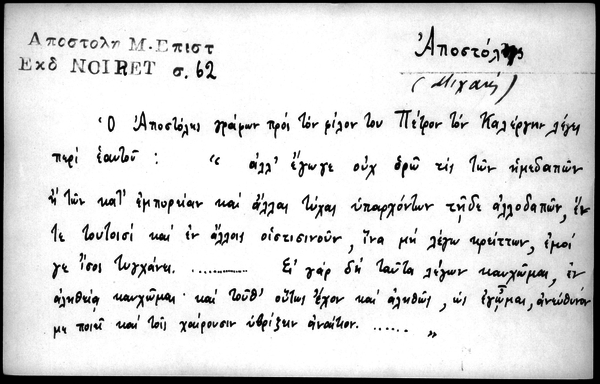 Αποστολη Μ. Επιστ
Εκδ NOIRET σ. 62
Ἀποστόλης
(Μιχαήλ)
Ὁ Ἀποστόλης γράφων πρός τόν φίλον του Πέτρον τόν Καλέργην λέγει
περί ἑαυτοῦ : " ἀλλ' ἔγωγε οὐχ ὁρῶ τίς τῶν ἡμεδαπῶν
ἤ τῶν κατ' ἐμπορείαν καί ἄλλας τύχας ὑπαρχόντων τῇδε ἀλλοδαπῶν, ἔν
τε τουτοισί καί ἐν ἄλλοις οἱστισινοῦν, ἵνα μή λέγω κρείττων, ἐμοί
γε ἴσος τυγχάνει. ............ Εἰ γάρ δή ταῦτα λέγων καυχῶμαι, ἐν
ἀληθείᾳ καυχῶμαι· καί τοῦθ' οὕτως ἔχον καί ἀληθῶς, ὡς ἐγᾦμαι, ἀνεύθυνόν
με ποιεῖ καί τοῖς χαίρουσιν ὑβρίζειν ἀνοίκτον. ...... "